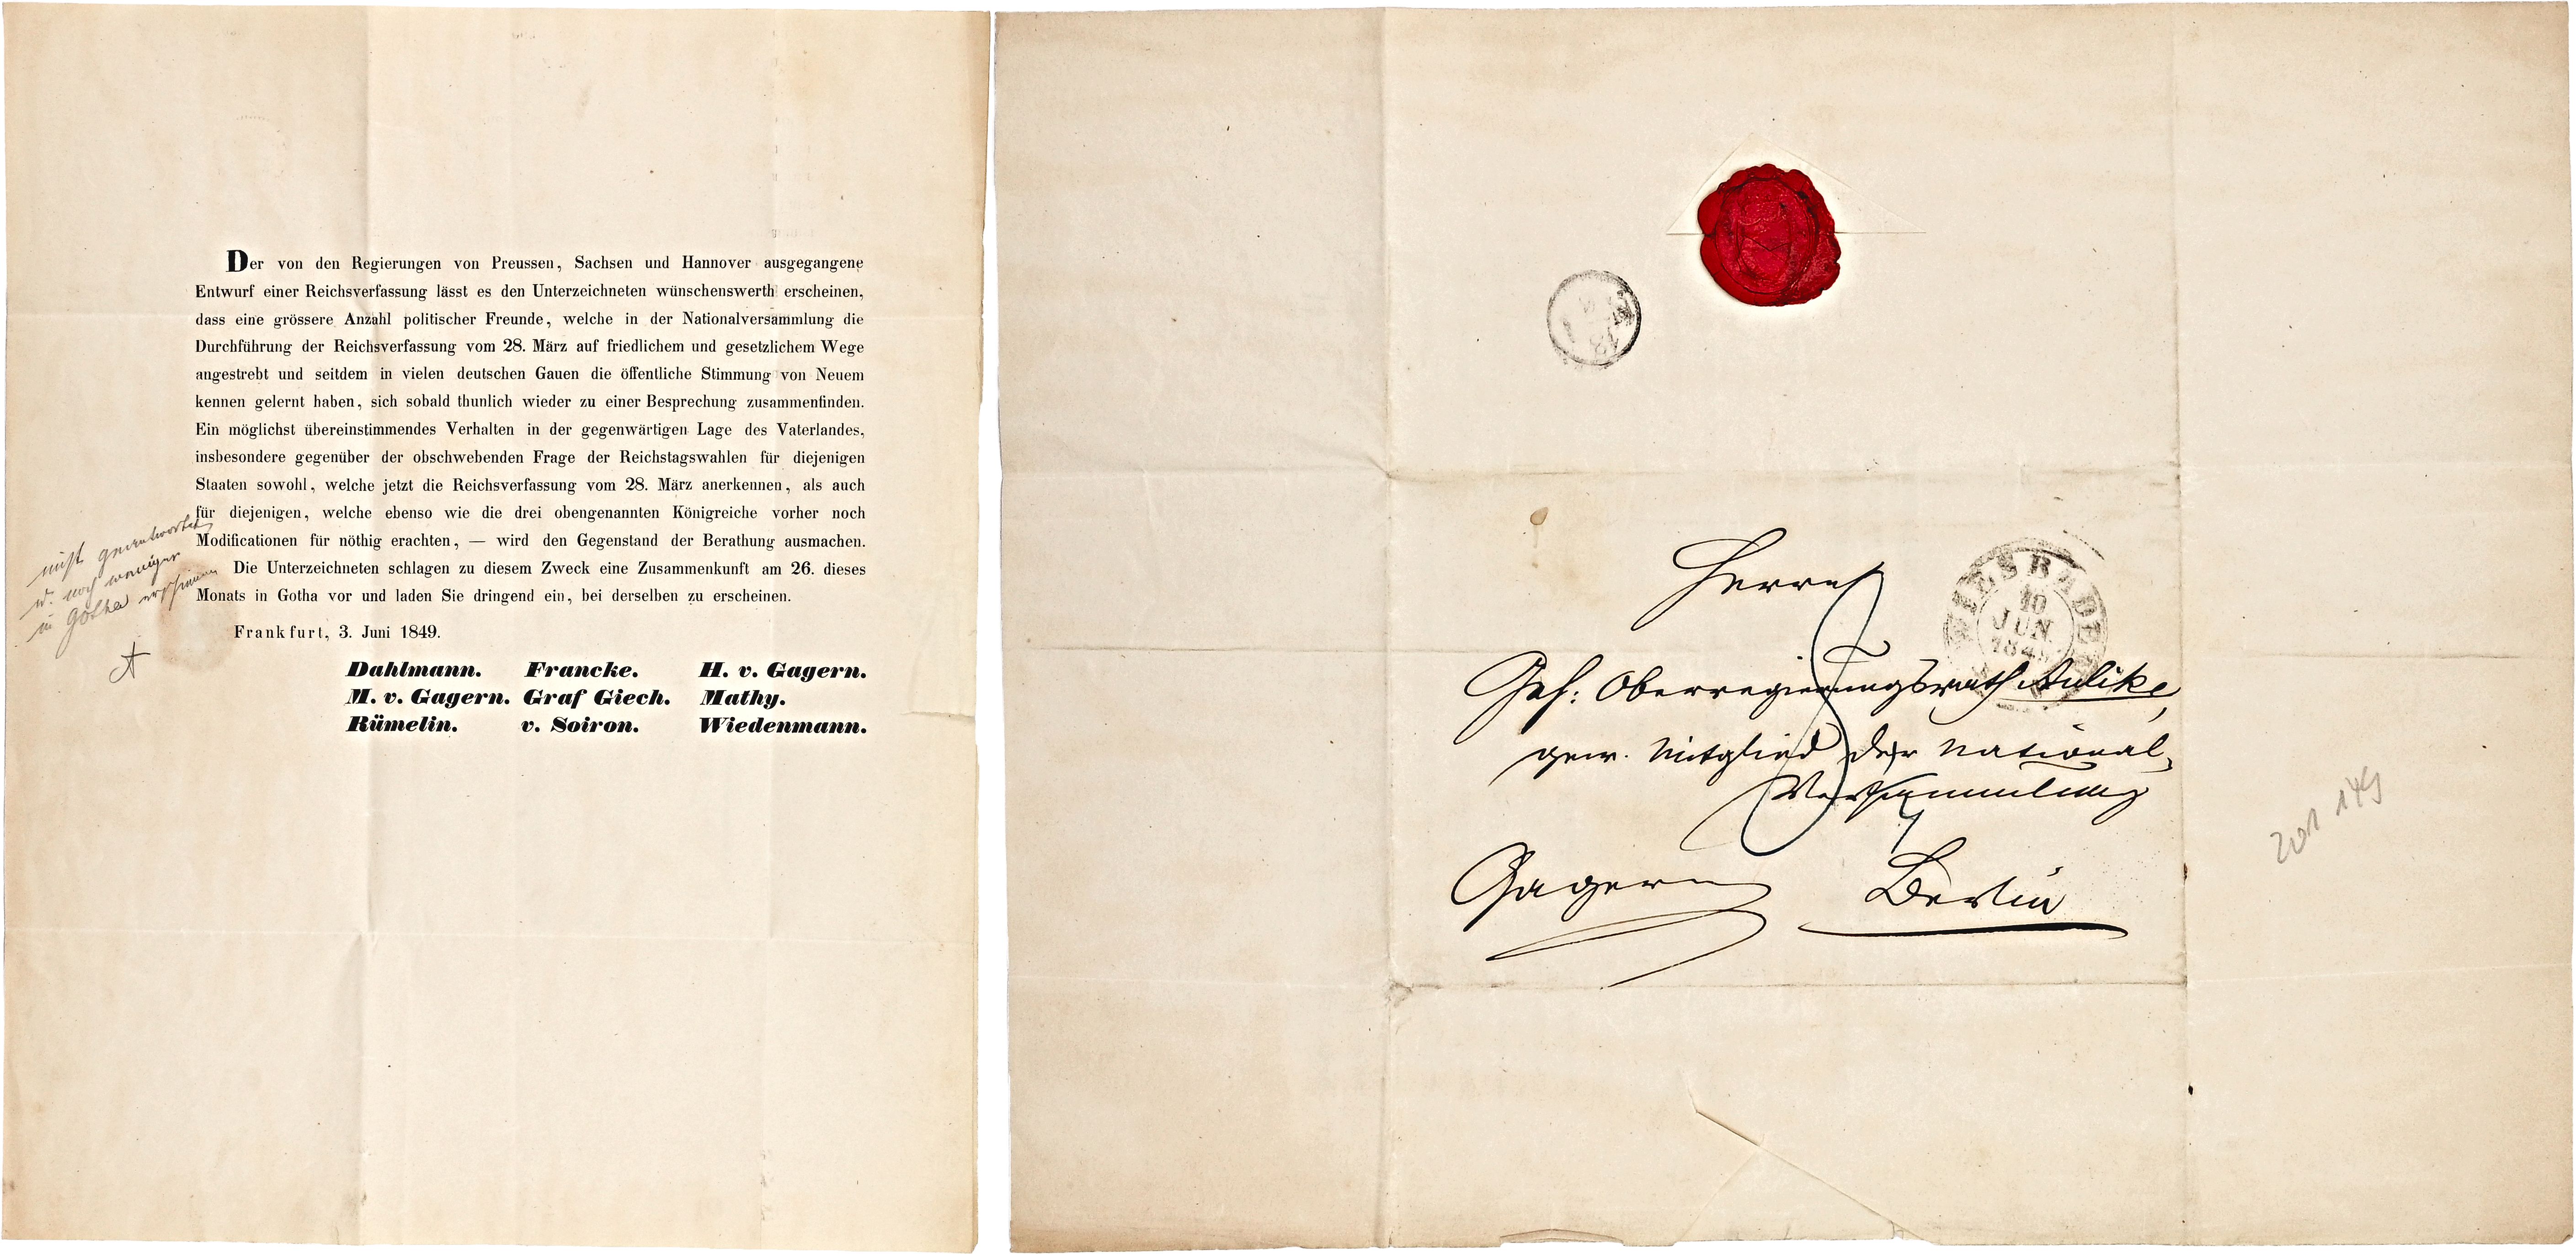 Der von den Regierungen von Preussen, Sachsen und Hannover ausgegangene
Entwurf einer Reichsverfassung lässt es den Unterzeichneten wünschenswerth erscheinen,
dass eine grössere Anzahl politischer Freunde, welche in der Nationalversammlung die
Durchführung der Reichsverfassung vom 28. März auf friedlichem und gesetzlichem Wege
angestrebt und seitdem in vielen deutschen Gauen die öffentliche Stimmung von Neuem
kennen gelernt haben, sich sobald thunlich wieder zu einer Besprechung zusammenfinden.
Ein möglichst übereinstimmendes Verhalten in der gegenwärtigen Lage des Vaterlandes,
insbesondere gegenüber der obschwebenden Frage der Reichstagswahlen für diejenigen
Staaten sowohl, welche jetzt die Reichsverfassung vom 28. März anerkennen, als auch
für diejenigen, welche ebenso wie die drei obengenannten Königreiche vorher noch
Modificationen für nöthig erachten, — wird den Gegenstand der Berathung ausmachen.
Die Unterzeichneten schlagen zu diesem Zweck eine Zusammenkunft am 26. dieses
Monats in Gotha vor und laden Sie dringend ein, bei derselben zu erscheinen.
Frankfurt, 3. Juni 1849.
Dahlmann. Francke. H. v. Gagern.
M. v. Gagern. Graf Giech. Mathy.
Rümelin. v. Soiron. Wiedenmann.
nicht geantwortet
u. noch weniger
in Gotha erschienen
A
WIESBADEN
10
JUN.
184
Herrn
Geh: Oberregierungsrath Aulike,
gew. Mitglied der National-
Versammlung
Berlin
Gagern
149